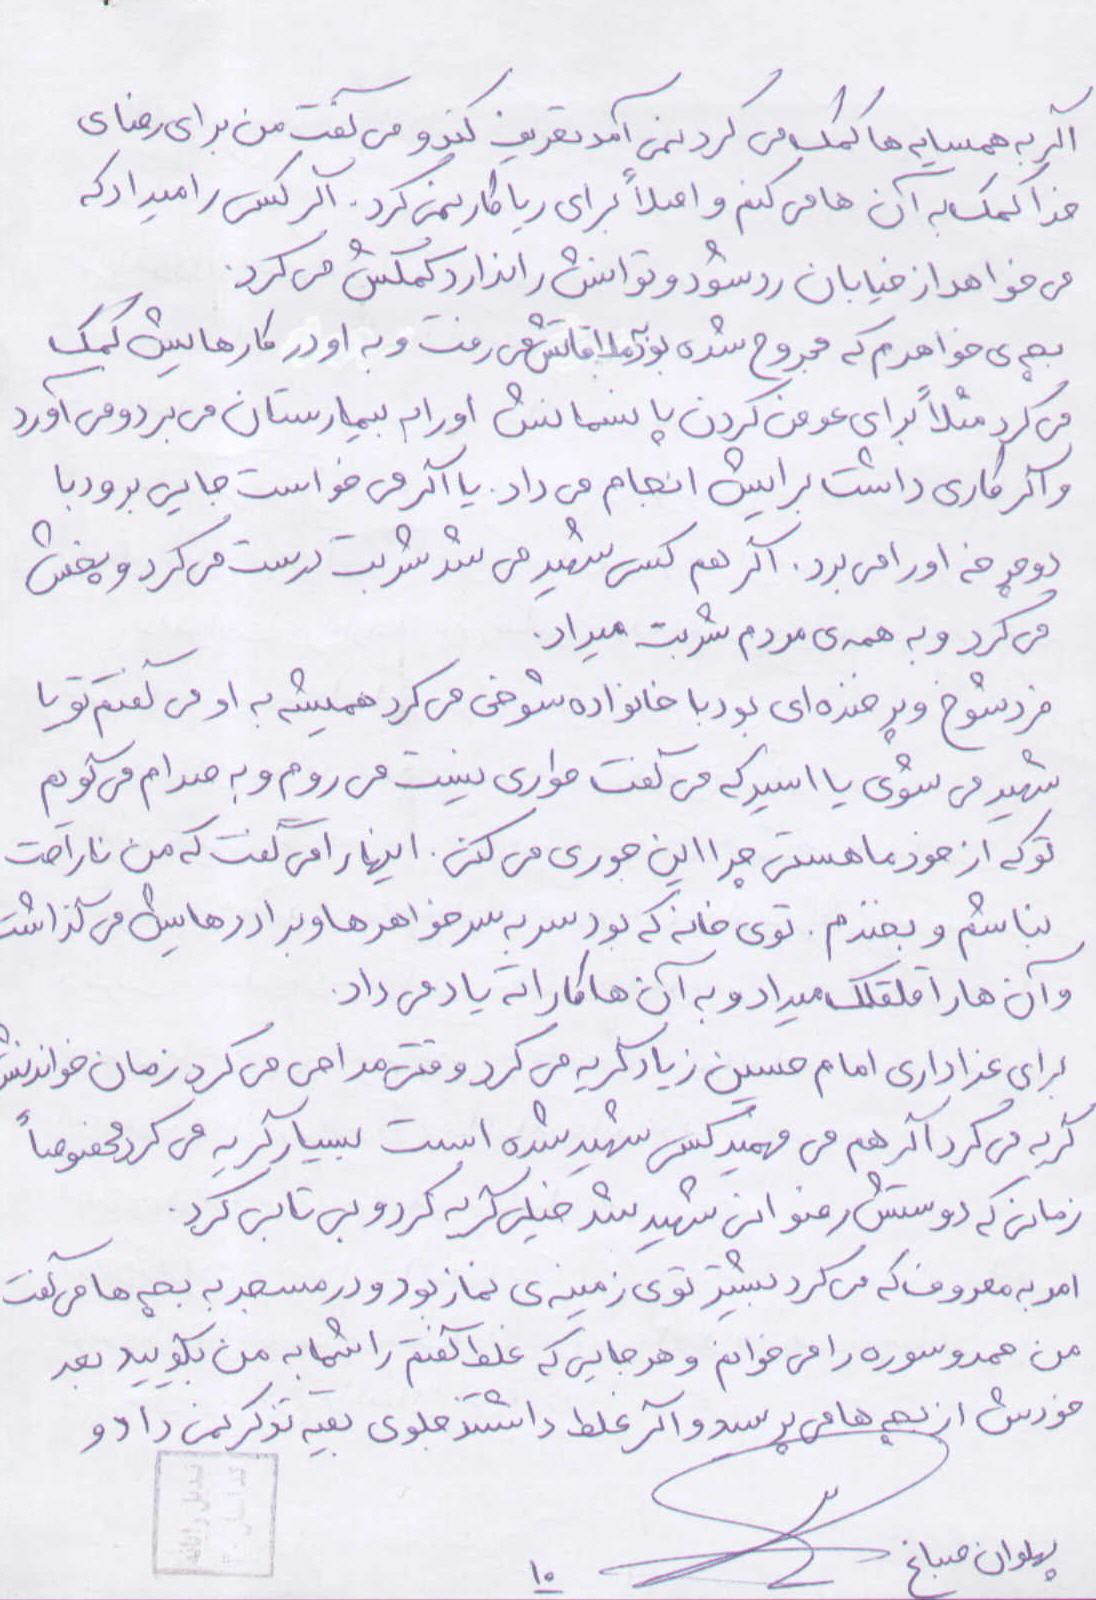 اگر به همسایه ها کمک می کرد نمی آمد تعریف کند و می گفت من برای رضای
خدا کمک به آن ها می کنم و اصلاً برای ریا کار نمی کرد. اگر کسی را میدید که
می خواهد از خیابان رد شود و توانش را ندارد کمکش می کرد.
بچه ی خواهرم که مجروح شده بود به ملاقاتش می رفت و به او در کارهایش کمک
می کرد مثلاً برای عوض کردن پانسمانش او را به بیمارستان می برد و می آورد
و اگر کاری داشت برایش انجام می داد. یا اگر می خواست جایی برود با
دوچرخه او را می برد. اگر هم کسی شهید می شد شربت درست می کرد و پخش
می کرد و به همه ی مردم شربت میداد.
فرد شوخ و پر خنده ای بود با خانواده شوخی می کرد همیشه به او می گفتم تو یا
شهید می شوی یا اسیر که می گفت مواری نیست می روم و به صدام می گویم
تو که از خود ما هستی چرا این جوری می کنی. اینها را می گفت که من ناراحت
نباشم و بخندم. توی خانه که بود سر به سر خواهرها و برادرهایش می گذاشت
و آن ها را قلقلک میداد و به آن ها کاراته یاد می داد.
برای عزاداری امام حسین زیاد گریه می کرد وقتی مداحی می کرد زمان خواندنش
گریه می کرد اگر هم می فهمید کسی شهید شده است بسیار گریه می کرد مخصوصاً
زمانی که دوستش رضوانی شهید شد خیلی گریه کرد و بی تابی کرد.
امر به معروف که می کرد بیشتر توی زمینه ی نماز بود و در مسجد به بچه ها می گفت
من حمد و سوره را می خوانم و هر جایی که غلط گفتم را شما به من بگویید بعد
خودش از بچه ها می پرسد و اگر غلط داشتند جلوی بقیه تذکر نمی داد و
پهلوان صباغ
۱۰